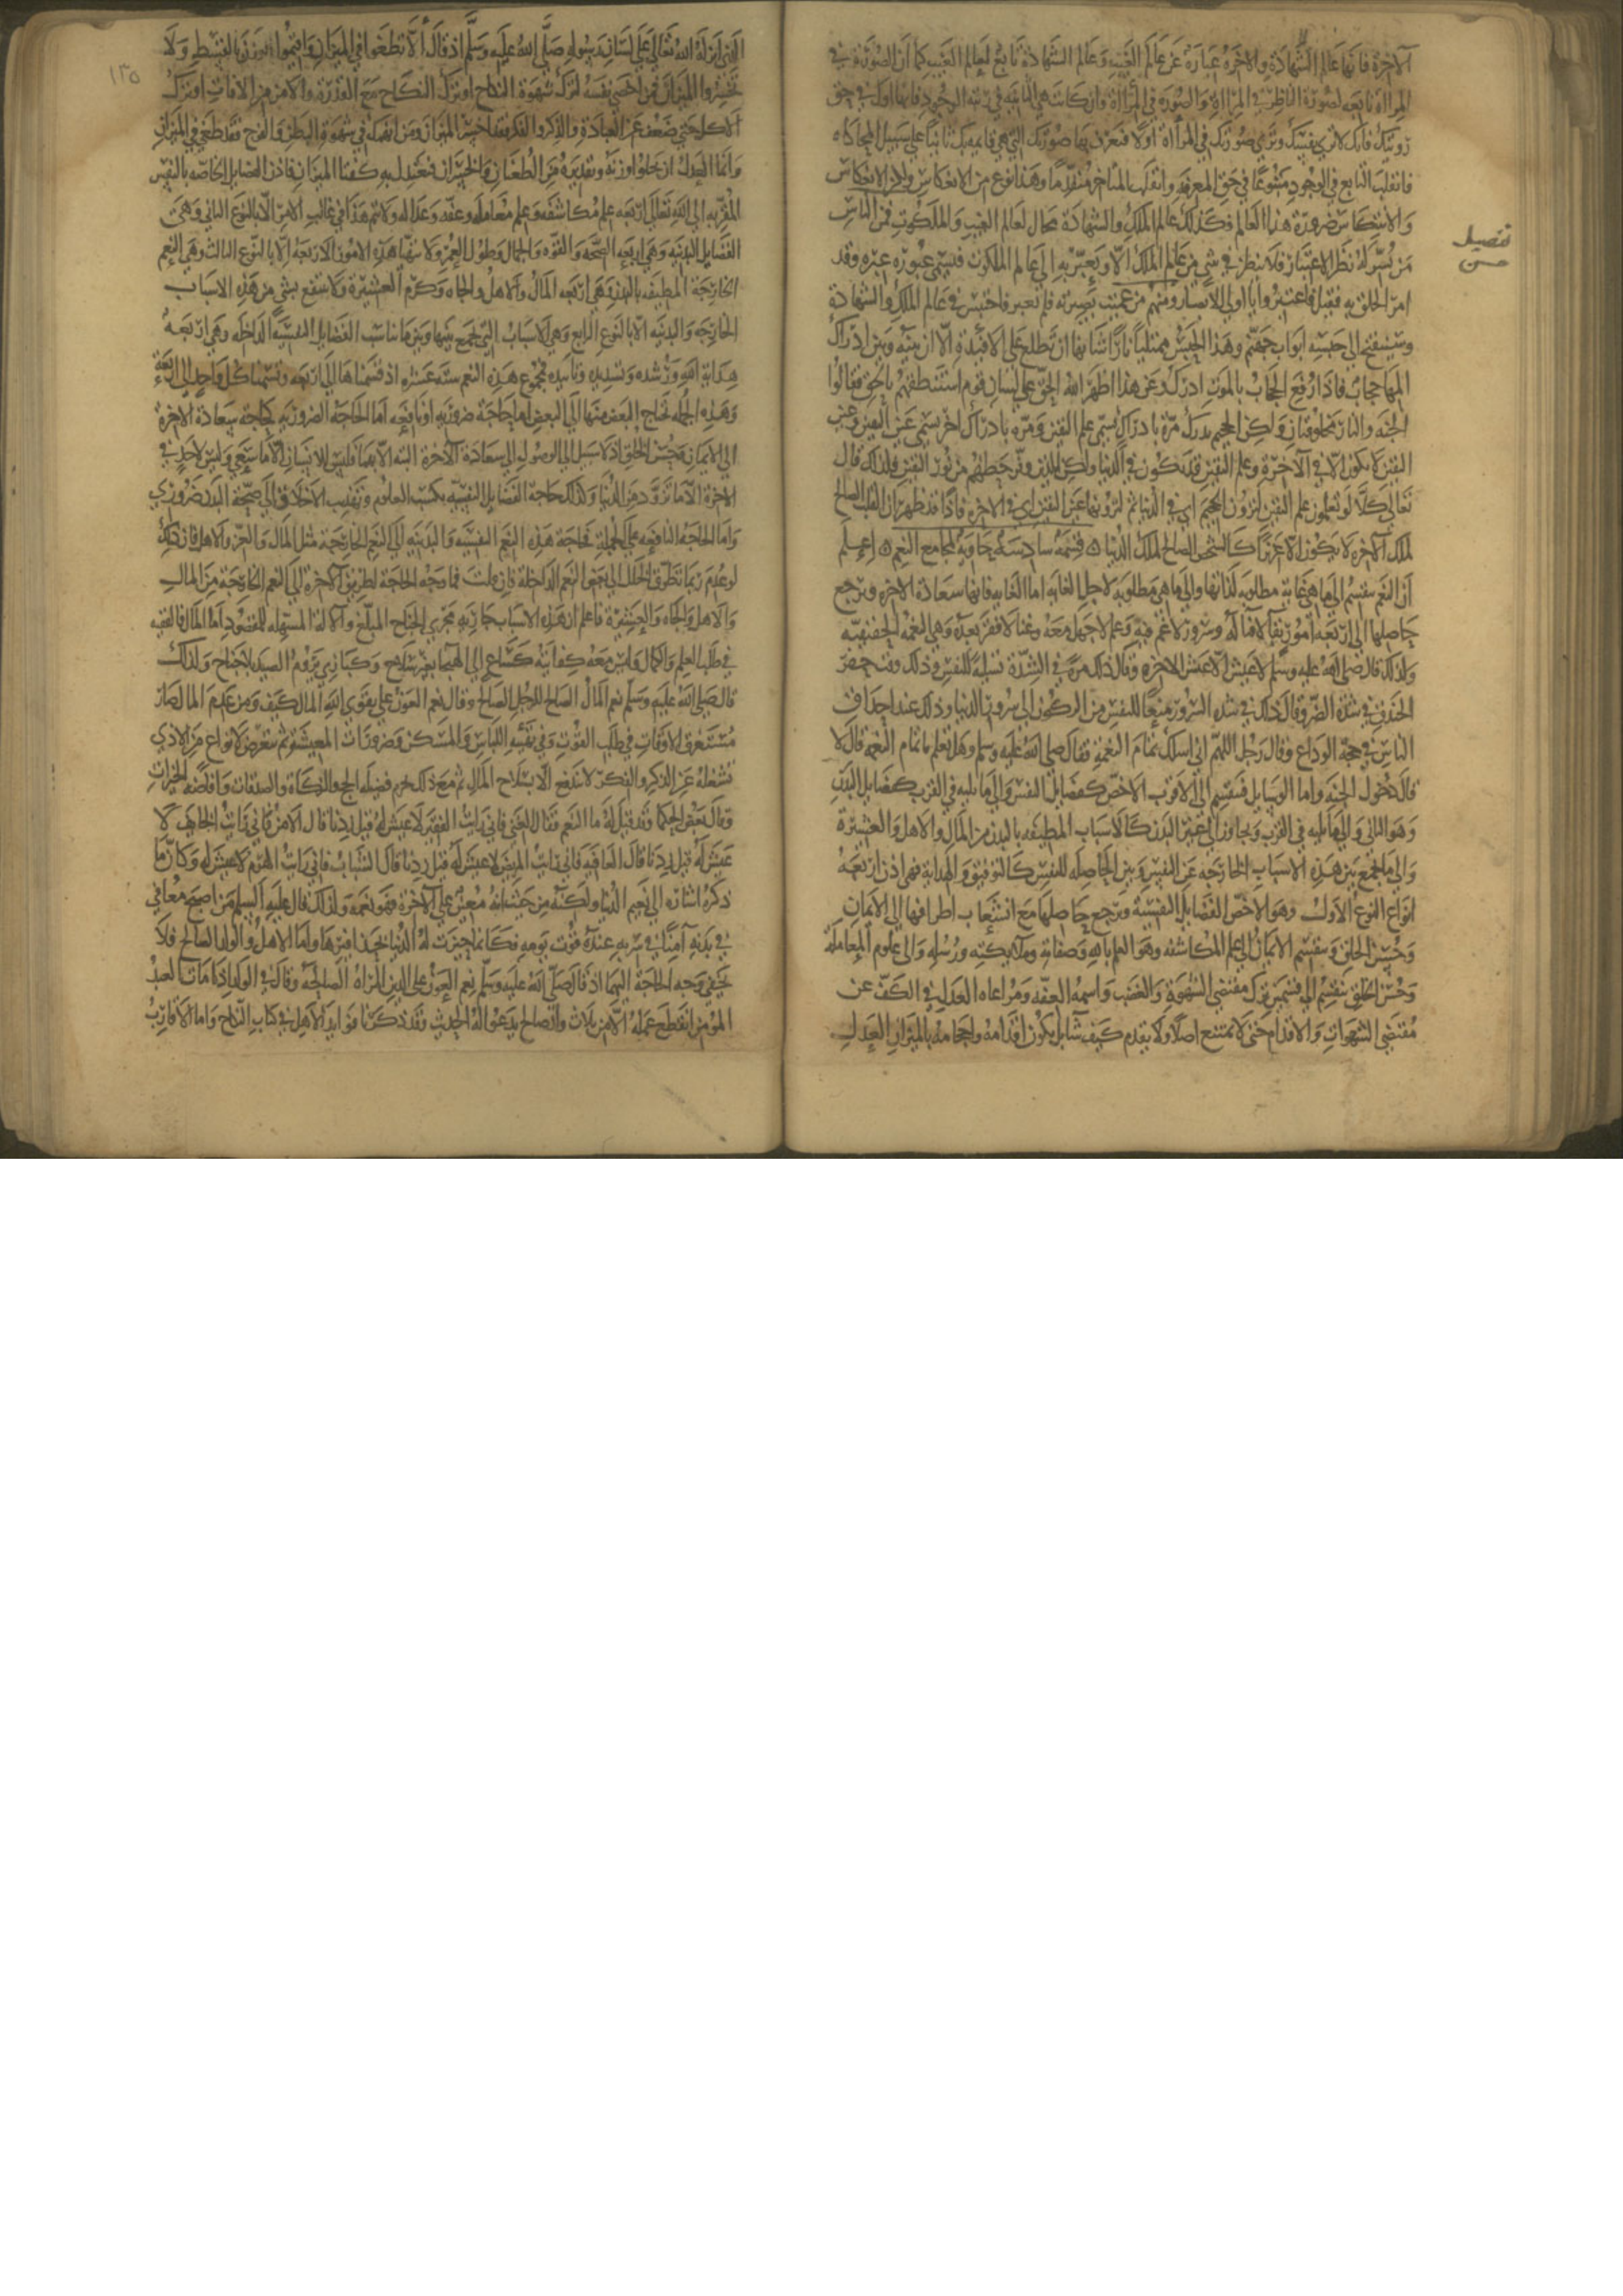 الآخرة فانها عالم الشهادة والاخرة عبارة عن عالم الغيب وعالم الشهادة تابع لعالم الغيب كما ان الصورة في
المراة تابعه لصورة الناظر في المراة والصورة في المراة وان كانت هي الثانيه في رتبه الوجود فانها اول في حق
رويتك فانك لا ترى نفسك وترى صورتك في المرأة اولا فتعرف بها صورتك التي هي قايمه بك ثانيا على سبيل المحاكاه
فانقلب التابع في الوجود متبوعا في حق المعرفه وانقلب المتاخر متقدما وهذا نوع من الانعكاس ولكن الانعكاس
والانتكاس ضرورة هذا العالم فكذلك عالم الملك والشهادة محاك لعالم الغيب والملكوت فمن الناس
من يسر له نظر الاعتبار فلا ينظر في شي من عالم الملك الا ويعبر به الى عالم الملكوت فيسمى عبوره عبره وقد
امر الخلق به فقيل فاعتبروا يا اولي الابصار ومنهم من عميت بصيرته فلم تعبر فاحتبس في عالم الملك والشهادة
وستنفتح الى حبسه ابواب جهنم وهذا الحبس ممتلئ نارا شانها ان تطلع على الافئدة الا ان بينه وبين ادراك
المها حجاب فاذا رفع الحجاب بالموت ادرك وعن هذا اظهر الله الحق على لسان قوم استنطقهم بالحق فقالوا
الجنه والنار مخلوقتان ولكن الجحيم تدرك مرة بادراك يسمى علم اليقين ومره بادراك اخر يسمى عين اليقين وعين
اليقين لا يكون الا في الآخرة وعلم اليقين قد يكون في الدنيا ولكن للذين وفر حظهم من نور اليقين فلذلك قال
تعالى كلا لو تعلمون علم اليقين لترون الجحيم اي في الدنيا ثم لترونها عين اليقين اي في الاخره فاذا قد ظهر ان القلب الصالح
لملك الآخرة لا يكون الا عزيزا كالشخص الصالح لملك الدنيا ۞ قسمة سادسة حاوية لمجامع النعم ۞ اعلم
ان النعم تنقسم الى ما هي غاية مطلوبه لذاتها والى ما هي مطلوبه لاجل الغايه اما الغايه فانها سعادة الاخره ويرجع
حاصلها الى اربعه امور بقا لا فنا له وسرور لا غم فيه وعلم لا جهل معه وغنا لا فقر بعده وهي النعمة الحقيقيه
ولذلك قال صلى الله عليه وسلم لا عيش الا عيش الاخره وقال ذلك مرة في الشدة تسلية للنفس وذلك وقت حفر
الخندق في شدة الضر وقال ذلك في شدة السرور منعا للنفس من الركون الى سرور الدنيا وذلك عند احداق
الناس في حجة الوداع وقال رجل اللهم اني اسلك تمام النعمة فقال صلى الله عليه وسلم وهل تعلم ما تمام النعمة قال لا
قال دخول الجنه واما الوسايل فتنقسم الى الاقرب الاخص كفضايل النفس والى ما يليه في القرب كفضايل البدن
وهو الثاني والى ما يليه في القرب ويجاوز الى غير البدن كالاسباب المطيفه بالبدن من المال والاهل والعشيرة
والى ما يجمع بين هذه الاسباب الخارجه عن النفس وبين الحاصله للنفس كالتوفيق والهدايه فهي اذن اربعة
انواع النوع الاول وهو الاخص الفضايل النفسية ويرجع حاصلها مع انشعاب اطرافها الى الايمان
وحسن الخلق وينقسم الايمان الى علم المكاشفه وهو العلم بالله وصفاته وملايكته ورسله والى علوم المعاملة
وحسن الخلق ينقسم الى قسمين ترك مقتضى الشهوة والغضب واسمه العفه ومراعاه العدل في الكف عن
مقتضى الشهوات والاقدام حتى لا يمتنع اصلا ولا يقدم كيف شا بل يكون اقدامه واحجامه بالميزان العدل
تفصيل
حسن
١٣٥
الذي انزله الله تعالى على لسان رسوله صلى الله عليه وسلم اذ قال ألا تطغوا في الميزان واقيموا الوزن بالقسط ولا
تخسروا الميزان فمن خصى نفسه لترك شهوة النكاح او ترك النكاح مع القدرة والامن من الافات او ترك
الاكل حتى ضعف عن العبادة والذكر والفكر فقد اخسر الميزان ومن انهمك في شهوة البطن والفرج فقد طغى في الميزان
وانما العدل ان يخلوا وزنه وتقديره من الطغيان والخسران فتعتدل به كفتا الميزان فاذن الفضايل الخاصه بالنفس
المقربه الى الله تعالى اربعه علم مكاشفه وعلم معامله وعفه وعداله ولا يتم هذا في غالب الامر الا بالنوع الثاني وهي
الفضايل البدنيه وهي اربعه الصحه والقوه والجمال وطول العمر ولا تتهيا هذه الامور الاربعه الا بالنوع الثالث وهي النعم
الخارجة المطيفه بالبدن وهي اربعه المال والاهل والجاه وكرم العشيرة ولا ينتفع بشي من هذه الاسباب
الخارجه والبدنيه الا بالنوع الرابع وهي الاسباب التي تجمع بينها وبين ما يناسب الفضايل النفسية الداخله وهي اربعة
هداية الله ورشده وتسديده وتاييده فمجموع هذه النعم ستة عشر اذ قسمناها الى اربعه وقسمنا كل واحد الى اربعة
وهذه الجمله تحتاج البعض منها الى البعض اما حاجة ضروريه او نافعه اما الحاجة الضروريه كحاجة سعادة الاخرة
الى الايمان وحسن الخلق اذ لا سبيل الى الوصول الى سعادة الآخرة البته الا بهما فليس للانسان الا ما سعى وليس لاحد في
الاخرة الا ما تزود من الدنيا وكذلك حاجة الفضايل النفسيه بكسب العلوم وتهذيب الاخلاق الى صحة البدن ضروري
واما الحاجة النافعه على الجملة فحاجة هذه النعم النفسيه والبدنيه الى النعم الخارجة مثل المال والعز والاهل فان ذلك
لو عدم ربما تطرق الخلل الى بعض النعم الداخلة فان قلت فما وجه الحاجة لطريق الآخرة الى النعم الخارجة من المال
والاهل والجاه والعشيرة فاعلم ان هذه الاسباب جاريه مجرى الجناح المبلغ والآلة المستهله للمقصود اما المال فالفقير
في طلب العلم والكمال وليس معه كفاية كساع الى الهيجا بغير سلاح وكبازي يروم الصيد بلا جناح ولذلك
قال صلى الله عليه وسلم نعم المال الصالح للرجل الصالح وقال نعم العون على تقوى الله المال كيف ومن عدم المال صار
مستغرق الاوقات في طلب القوت وفي تهيه اللباس والمسكن وضرورات المعيشه ثم يتعرض لانواع من الاذى
تشغله عن الذكر والفكر لا تندفع الا بسلاح المال ثم مع ذلك يحرم فضيله الحج والزكاة والصدقات وافاضه الخيرات
وقال بعض الحكما وقد قيل له ما النعيم فقال الغنى فاني رايت الفقير لا عيش له قيل زدنا قال الامن فاني رايت الخايف لا
عيش له قيل زدنا قال العافيه فاني رايت المريض لا عيش له قيل زدنا قال الشباب فاني رايت الهرم لا عيش له وكان ما
ذكره اشارة الى نعيم الدنيا ولكنه من حيث انه معين على الآخرة فهو نعمه ولذلك قال عليه السلم من اصبح معافى
في بدنه آمنا في سربه عنده قوت يومه فكانما حيزت له الدنيا بحذافيرها واما الاهل والولد الصالح فلا
يخفى وجه الحاجة اليهما اذ قال صلى الله عليه وسلم نعم العون على الدين المراة الصالحة وقال في الولد اذا مات العبد
المؤمن انقطع عمله الا من ثلاث ولد صالح يدعو له الحديث وقد ذكرنا فوايد الاهل في كتاب النكاح واما الاقارب